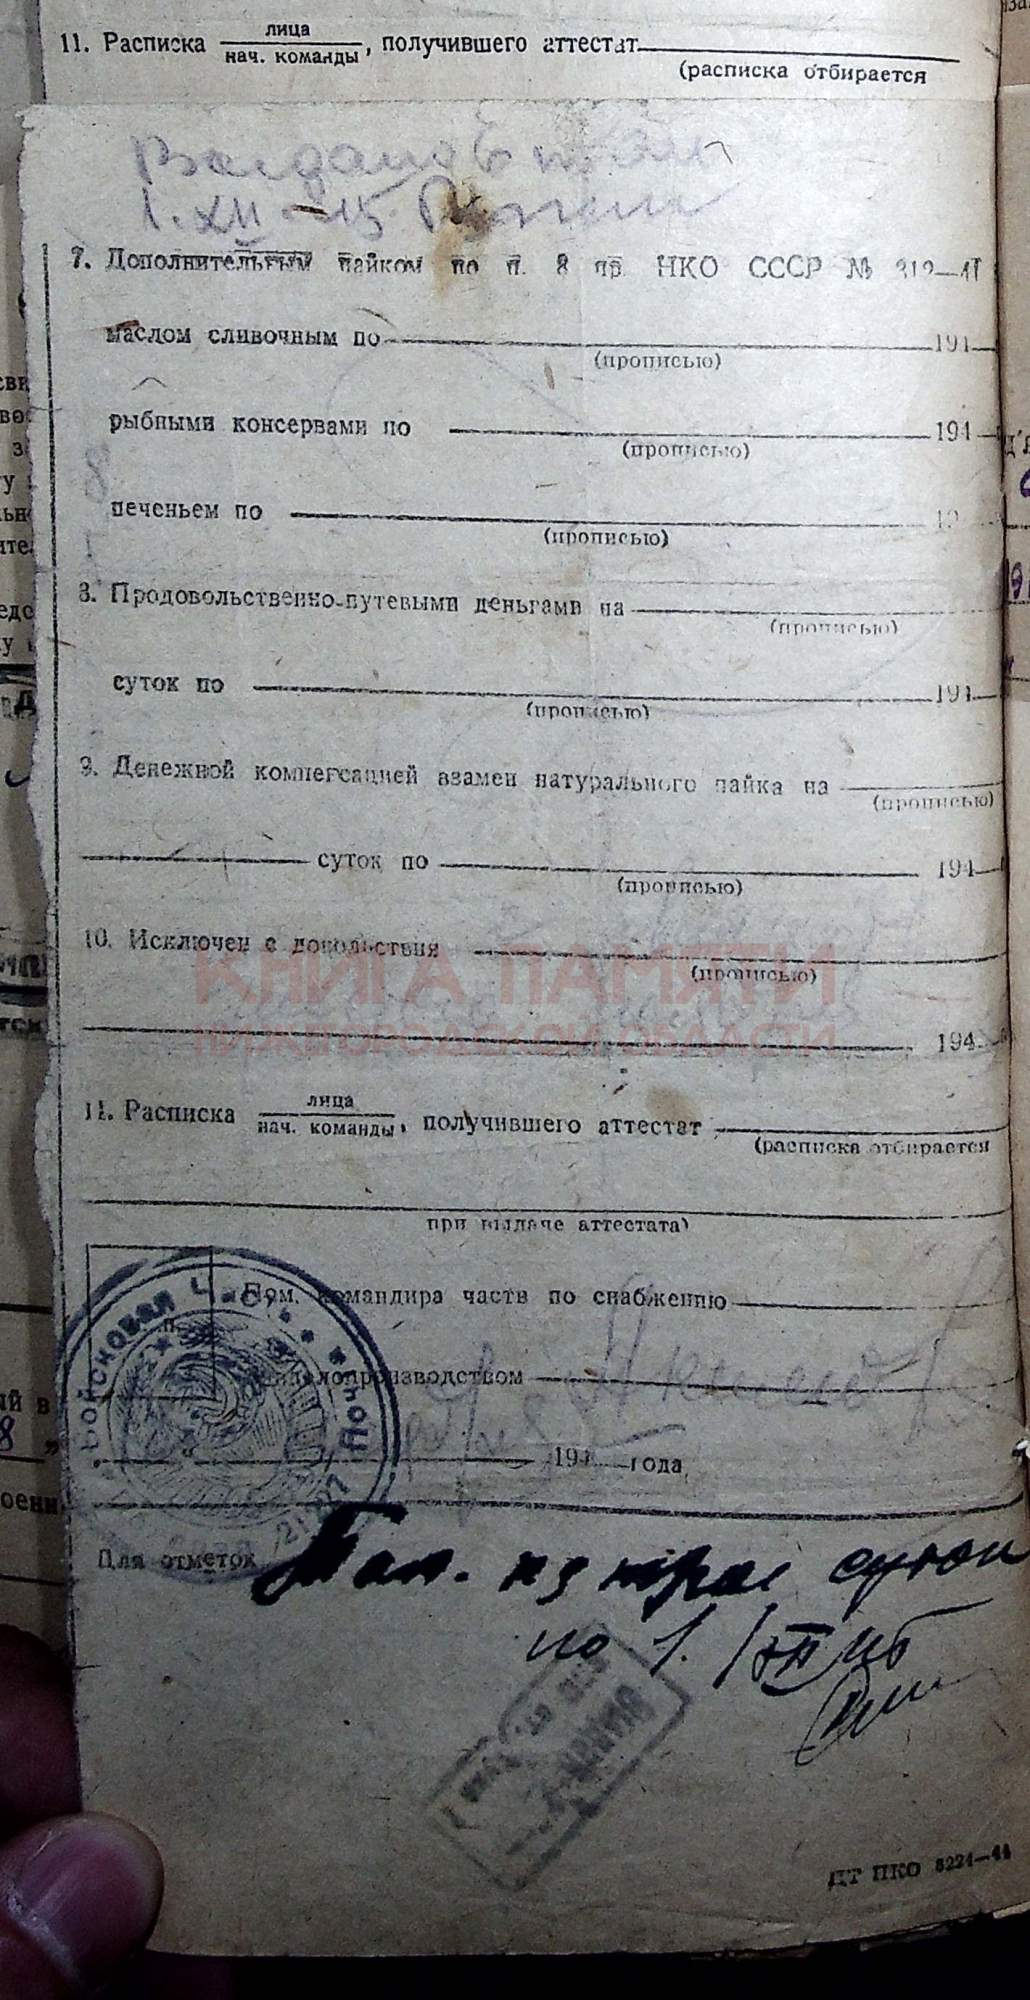 11. Расписка лица
нач. команды, получившего аттестат
(расписка отбирается
1.XII-45.
7. Дополнительным пайком по п. 8 пр. НКО СССР № 312—41
маслом сливочным по 194
(прописью)
рыбными консервами по 194
(прописью)
печеньем по
(прописью)
8. Продовольственно-путевыми деньгами на
(прописью)
суток по 194
(прописью)
9. Денежной компенсацией взамен натурального пайка на
(прописью)
суток по 194
(прописью)
10. Исключен с довольствия
(прописью)
КНИГА ПАМЯТИ
НИЖЕГОРОДСКОЙ ОБЛАСТИ
194
11. Расписка лица
нач. команды, получившего аттестат
(расписка отбирается
при выдаче аттестата)
Пом. командира части по снабжению
делопроизводством
194 года
Войсковая Часть Полев
Для отметок
на трое суток
по 1. XII 45
ДТ ПКО 8224—44